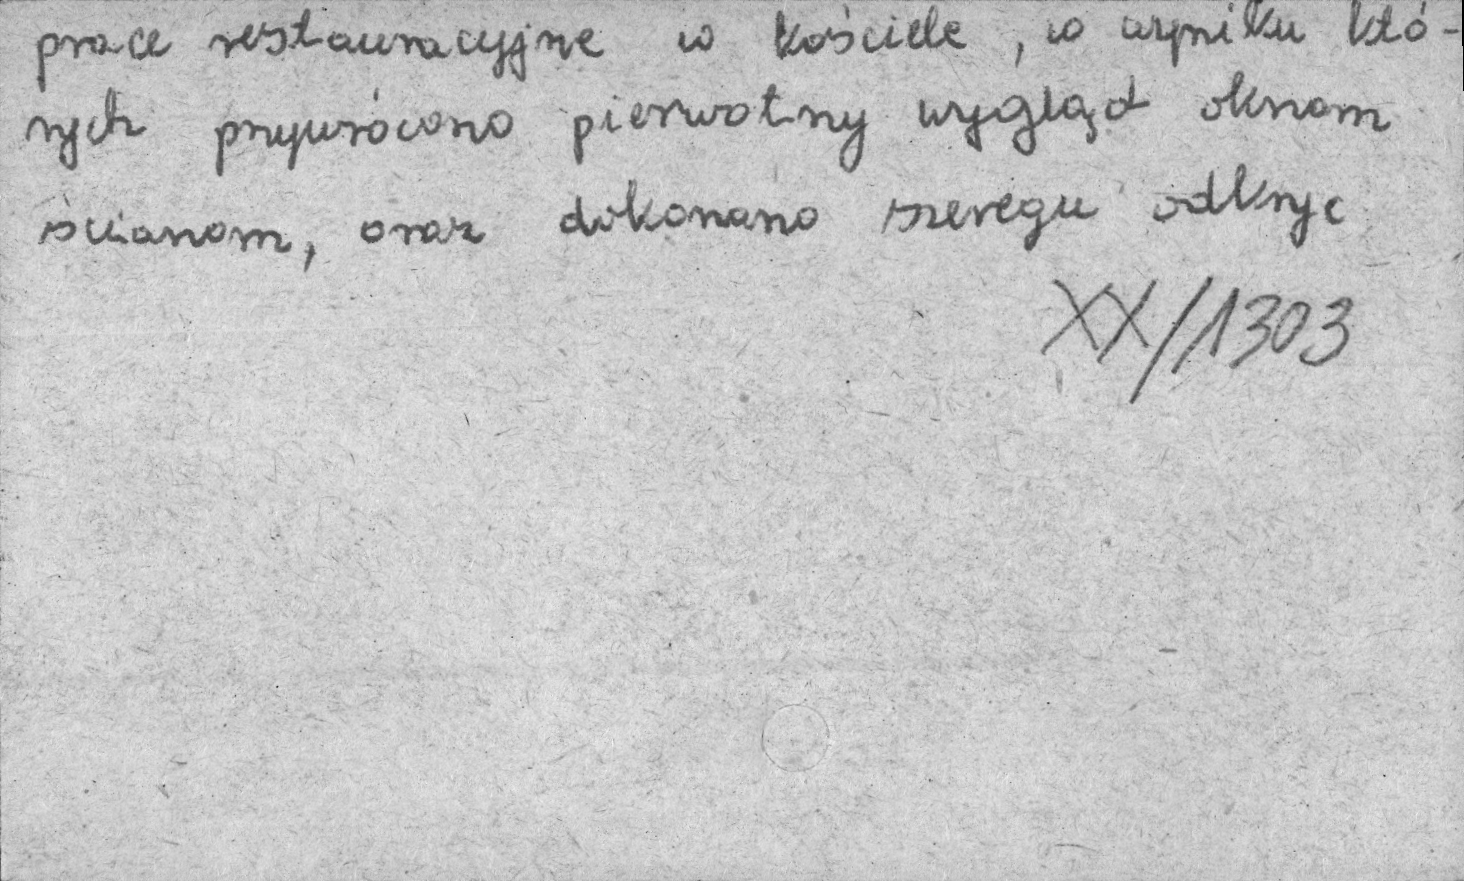 prace restauracyjne w kościele, w wyniku któ-
rych przywrócono pierwotny wygląd oknom
ścianom, oraz dokonano szeregu odkryc
XX/1303